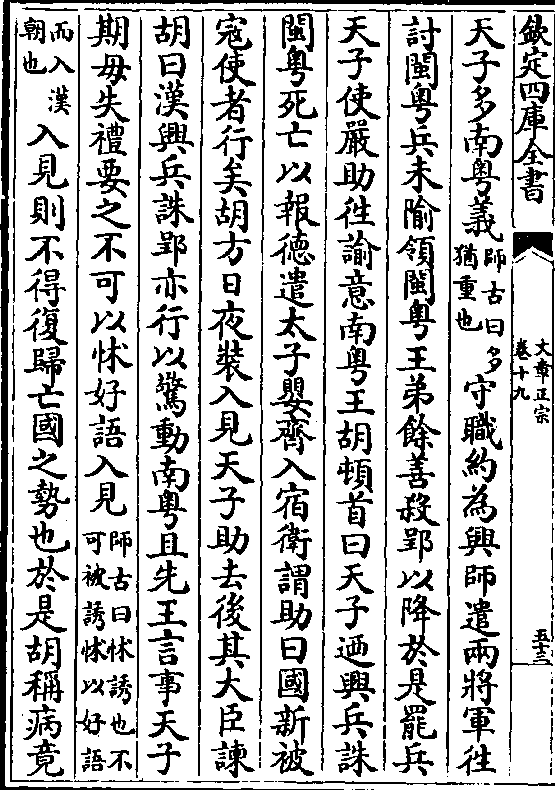 欽定四庫全書
文章正宗
卷十九
五十三
天子多南粤義師古曰多猶重也守職約為興師遣兩將軍往
討閩粤兵未隃領閩粤王弟餘善殺郢以降於是罷兵
天子使嚴助往諭意南粤王胡頓首曰天子迺興兵誅
閩粤死亡以報德遣太子嬰齊入宿衛謂助曰國新被
寇使者行矣胡方日夜裝入見天子助去後其大臣諫
胡曰漢興兵誅郢亦行以驚動南粤且先王言事天子
期毋失禮要之不可以怵好語入見師古曰怵誘也不可被誘怵以好語
而入漢朝也入見則不得復歸亡國之勢也於是胡稱病竟